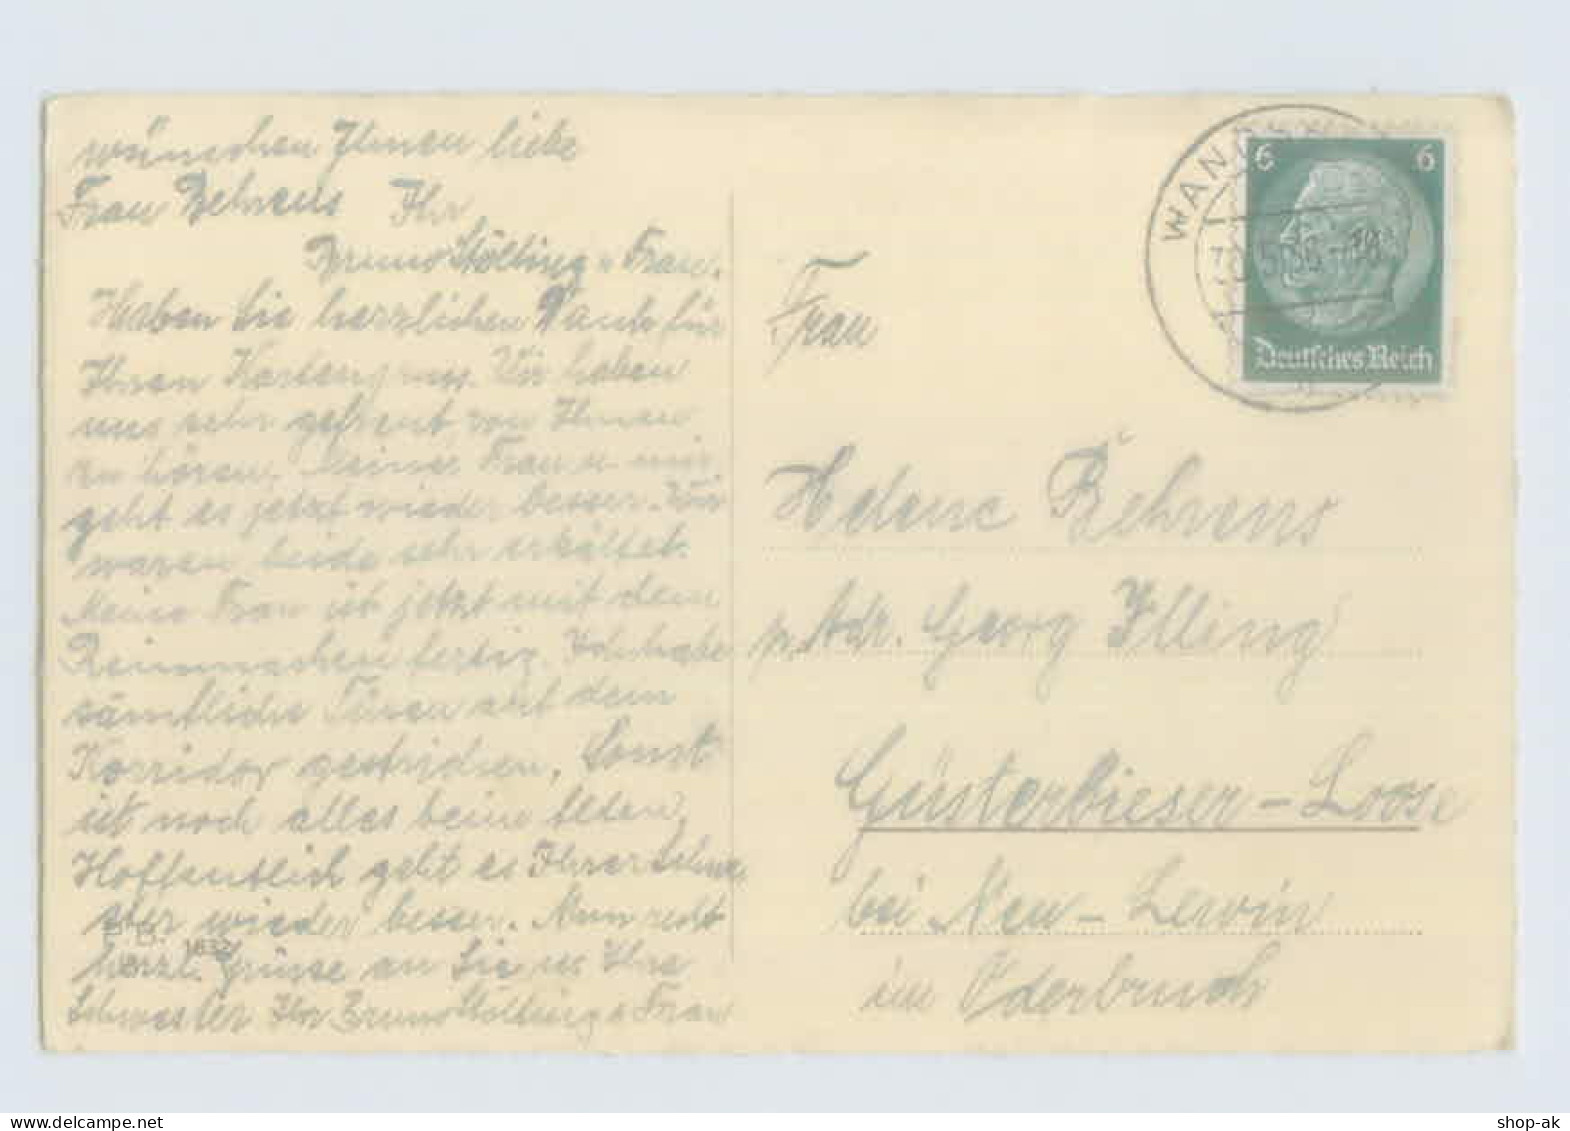 wünschen Ihnen liebe
Frau Behrens Ihr
Bruno Stölting u Frau.
Haben Sie herzlichen Dank für
Ihren Kartengruss. Wir haben
uns sehr gefreut, von Ihnen
zu hören. Meiner Frau u mir
geht es jetzt wieder besser. Wir
waren beide sehr erkältet.
Meine Frau ist jetzt mit dem
Reinmachen fertig. Ich habe
sämtliche Türen auf dem
Korridor gestrichen. Sonst
ist noch alles beim alten.
Hoffentlich geht es Ihrer Schwe
ster wieder besser. Nun recht
herzl. Grüsse an Sie u Ihre
Schwester Ihr Bruno Stölting u Frau
1632
Frau
Helene Behrens
p. Adr. Georg Illing
Güsterbieser-Loose
bei Neu-Lewin
im Oderbruch
6 6
Deutsches Reich
shop-ak